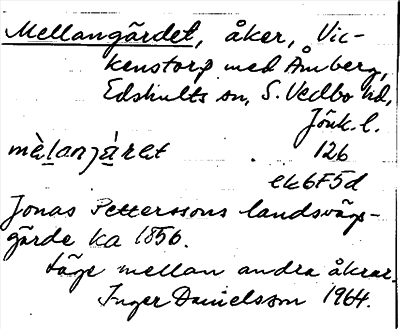 Mellangärdet, åker, Vic-
kenstorp med Åmberg,
Edshults sn, S. Vedbo hd,
Jönk. l.
mèlanjä̀ret 126
ek6F5d
Jonas Petterssons landsvägs-
gärde ka 1856.
Läge mellan andra åkrar.
Inger Danielsson 1964.